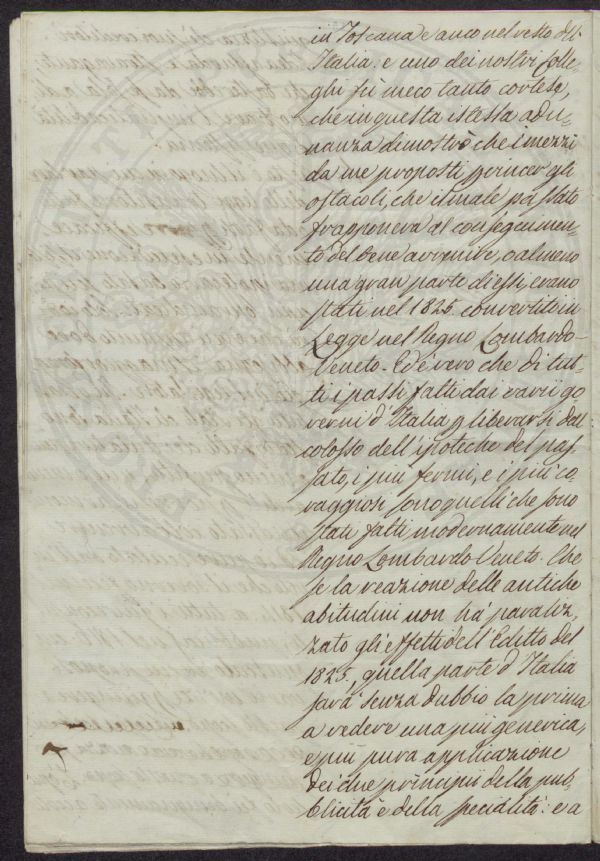 in Toscana e anco nel resto dell'
Italia: e uno dei nostri Colle-
ghi fù meco tanto cortese,
che in questa istessa adu-
nanza dimostrò che i mezzi
da me proposti p vincer gli
ostacoli, che il male passato
frapponeva al conseguimen-
to del bene avvenire, o almeno
una gran parte di essi, erano
stati nel 1825 convertiti in
Legge nel Regno Lombardo-
Veneto. Ed è vero che di tut-
ti i passi fatti dai varii go-
verni d'Italia p liberarsi dal
colosso dell'ipoteche del pas-
sato, i più fermi, e i più co
raggiosi sono quelli che sono
stati fatti modernamente nel
Regno Lombardo Veneto. Che
se la reazione delle antiche
abitudini non ha paraliz-
zato gli effetti dell'Editto del
1825, quella parte d'Italia
sarà senza dubbio la prima
a vedere una più generica,
e più pura applicazione
dei due principii della pub-
blicità e della specialità: e a